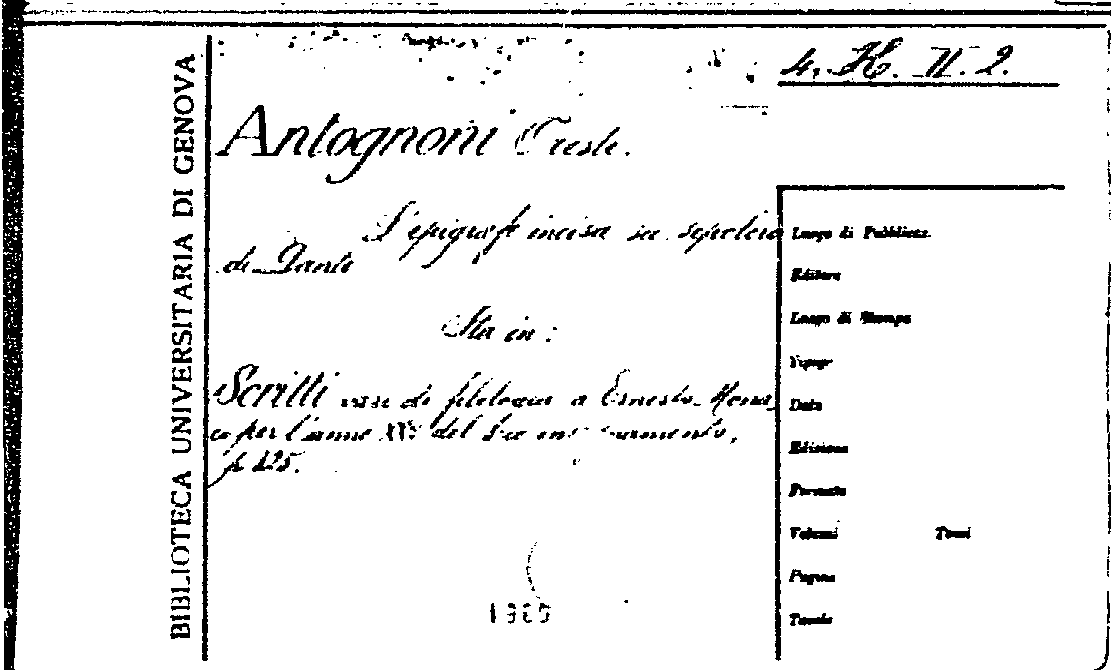 4. H. II. 2.
BIBLIOTECA UNIVERSITARIA DI GENOVA
Antognoni Oreste.
L'epigrafe incisa sul sepolcro
di Dante
Sta in:
Scritti vari di filologia a Ernesto Mona
co per l'anno XXV del suo insegnamento,
p. 325.
Luogo di Pubblicaz.
Editore
Luogo di Stampa
Tipogr
Data
Edizione
Formato
Volumi Tomi
Pagine
Tavole